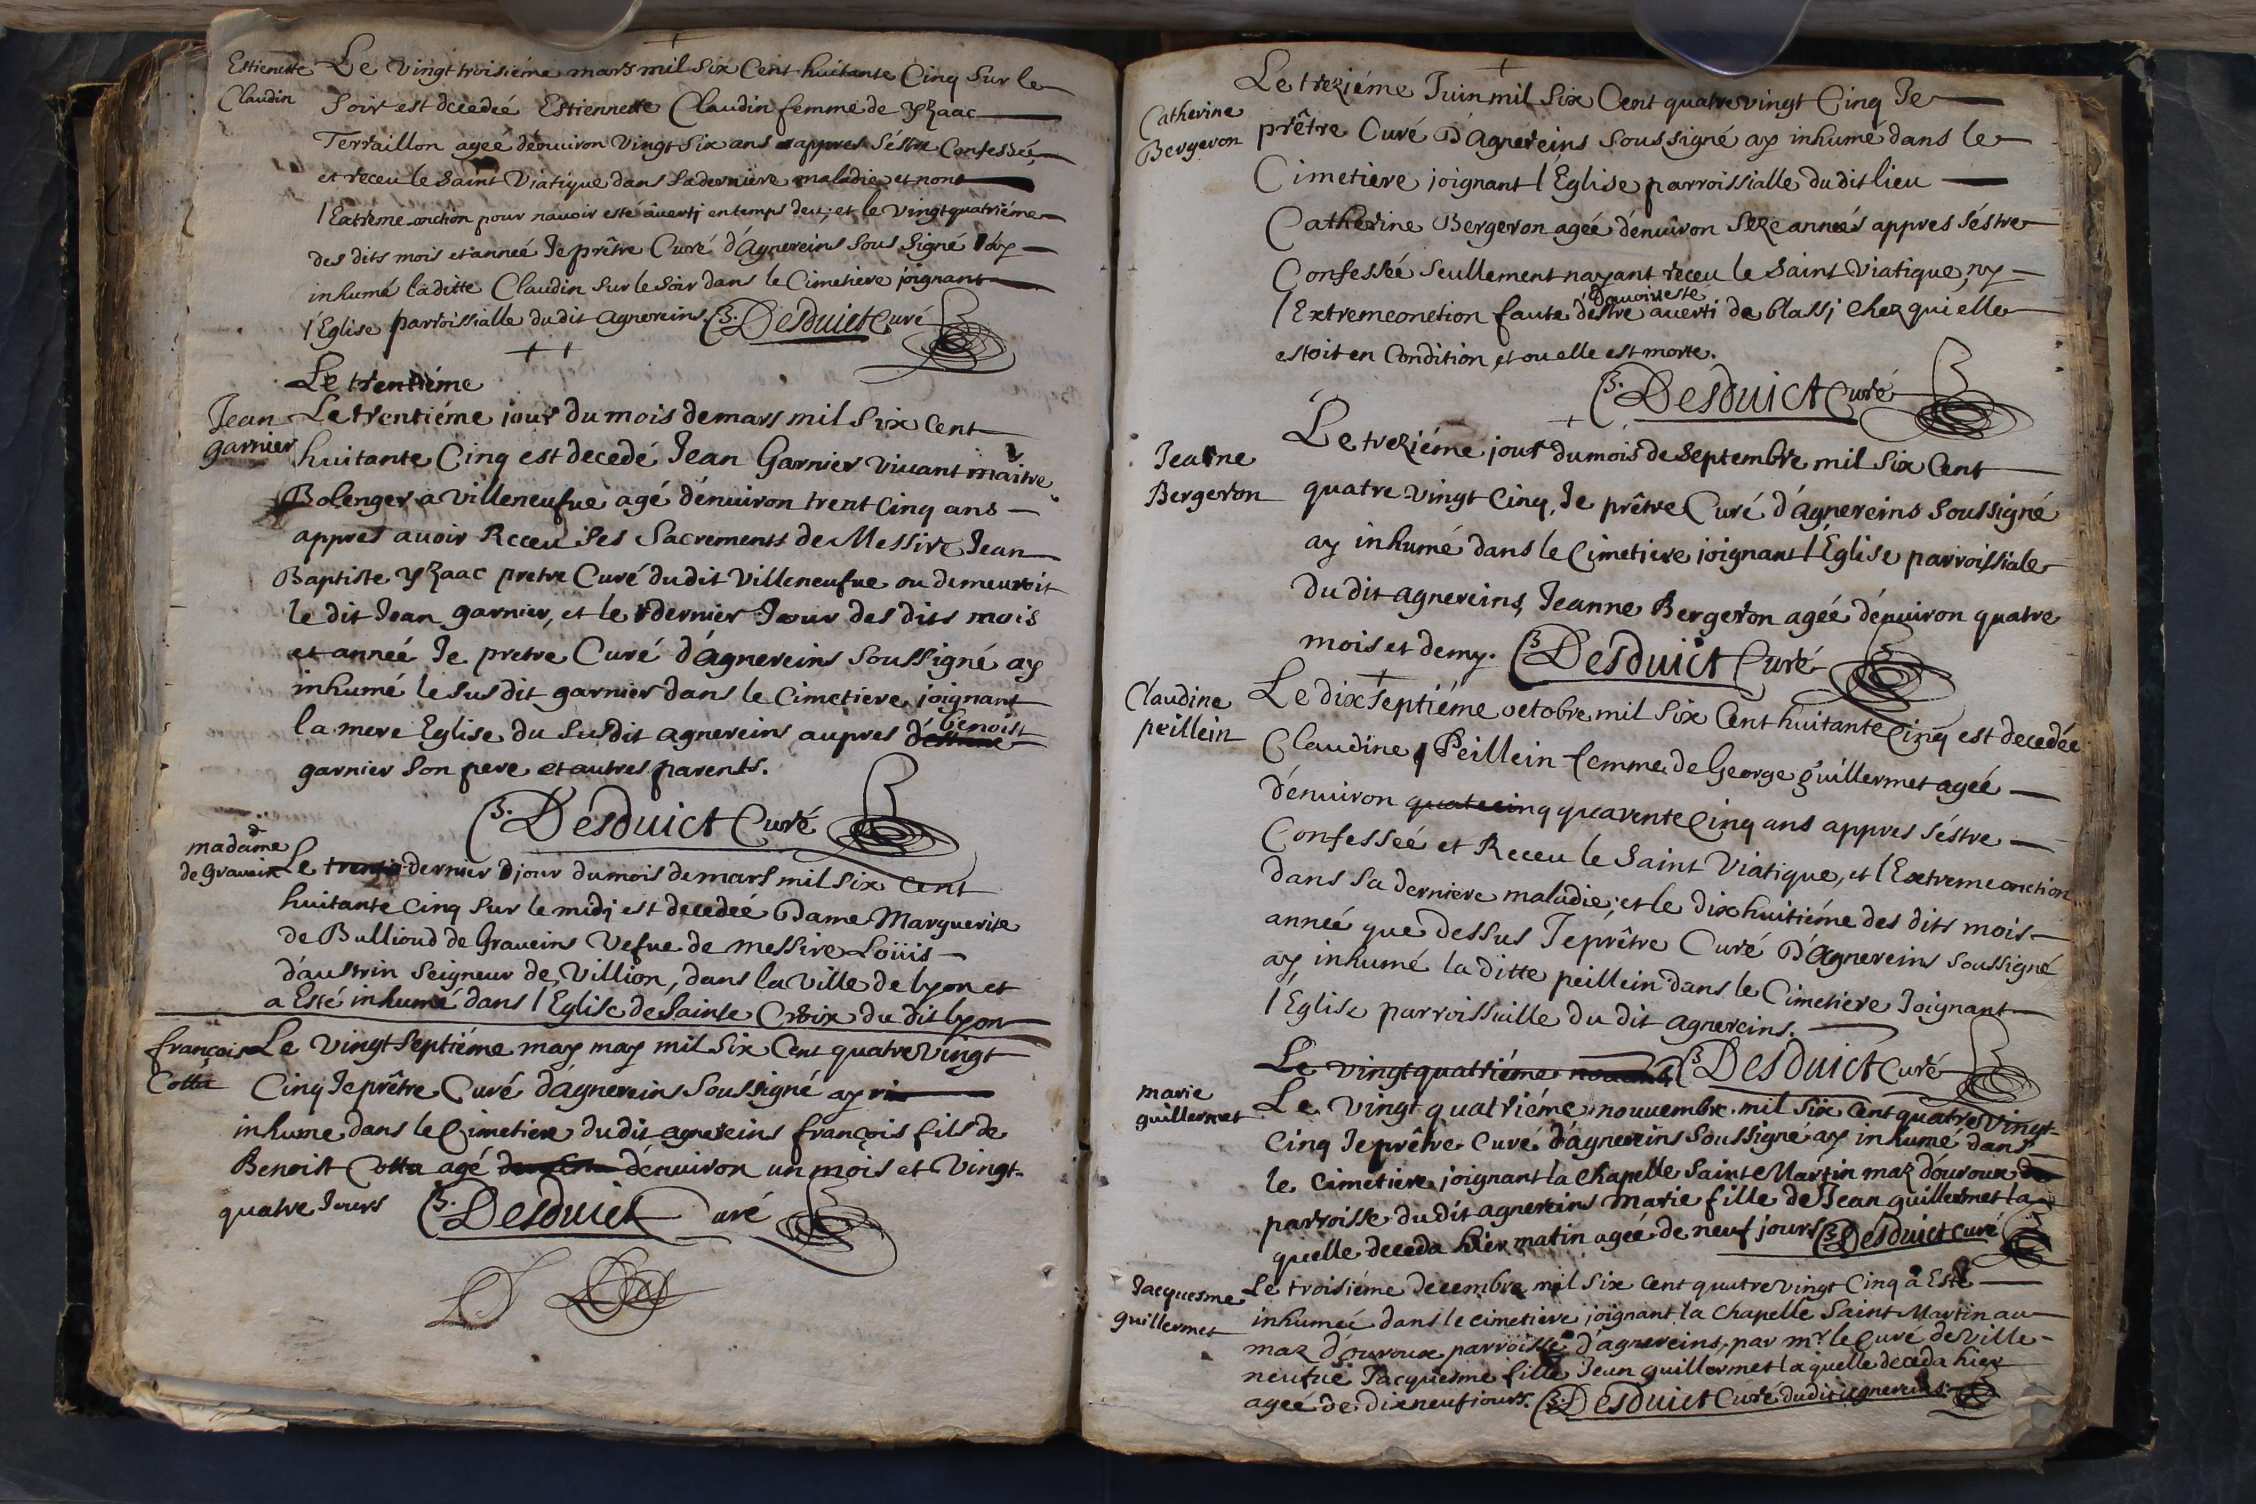 Estiennette
Claudin
Le vingt troisiéme mars mil six Cent huitante Cinq sur le
soir est decedeé Estiennette Claudin femme de yzaac
Terraillon agée dénuiron vingt six ans appres séstre Confessée
et receu le saint Viatique dans sa derniere maladie et non
l Extreme onction pour nauoir esté auerti en temps deu; et le vingt quatriéme
des dits mois et anneé Je prêtre Curé d'agnereins sous signé ay
inhumé laditte Claudin sur le soir dans le Cimetiere joignant
l'Eglise parroissialle dudit agnereins. B. Desduict Curé
Le trentiéme
Jean
garnier
Le trentiéme jour du mois de mars mil six cent
huitante Cinq est decedé Jean Garnier viuant maitre
Bolenger a villeneufue agé dénuiron trent cinq ans
appres auoir Receu ses Sacrements de Messire Jean
Baptiste yzaac pretre Curé dudit Villeneufue ou demeuroit
le dit Jean garnier, et le dernier Jour des dits mois
et anneé Je pretre Curé d'agnereins soussigné ay
inhumé le susdit garnier dans le cimetiere joignant
la mere Eglise du susdit agnereins aupres de benoist
garnier son pere et autres parents.
B. Desduict Curé
madame
de Graueins
Le dernier jour du mois de mars mil six cent
huitante cinq sur le midj est decedeé Dame Marguerite
de Bullioud de Graueins Vefue de messire Loüis
d'austrin seigneur de Villion, dans la ville de lyon et
a Esté inhumé dans l Eglise de sainte Croix du dit lyon
françois
Cotta
Le vingt septiéme may may mil six Cent quatre vingt
Cinq Je prêtre Curé d'agnereins soussigné ay
inhume dans le Cimetiere dudit agnereins françois fils de
Benoist Cotta agé dénuiron un mois et vingt
quatre Jours B. Desduict Curé
Catherine
Bergeron
Le treziéme Juin mil six Cent quatre vingt Cinq Je
prêtre Curé D'agnereins soussigné ay inhumé dans le
Cimetiere joignant l Eglise parroissialle dudit lieu
Catherine Bergeron ageé dénuiron seze anneés appres séstre
Confesseé seullement nayant receu le saint viatique, ny
l Extremeonction faute d'auoir esté auerti de blassj chez qui elle
estoit en Condition et ou elle est morte.
B. Desduict Curé
Jeanne
Bergeron
Le treziéme jour du mois de septembre mil six Cent
quatre vingt Cinq, Je prêtre Curé d'agnereins soussigné
ay inhumé dans le Cimetiere joignant l Eglise parroissiale
du dit agnereins, Jeanne Bergeron ageé dénuiron quatre
mois et demy. B. Desduict Curé
Claudine
peillein
Le dix septiéme octobre mil six Cent huitante Cinq est decedée
Claudine Peillein femme de George guillermet ageé
dénuiron quarente Cinq ans appres séstre
Confesseé et Receu le saint Viatique, et l Extremeonction
dans sa derniere maladie; et le dixhuitiéme des dits mois
anneé que dessus Je prêtre Curé D'agnereins soussigné
ay inhumé la ditte peillein dans le Cimetiere Joignant
l Eglise parroissialle du dit agnereins.
Le vingt quatriéme B. Desduict Curé
marie
guillermet
Le vingt quatriéme nouuembre mil six cent quatre vingt
Cinq Je prêtre Curé d'agnereins soussigné ay inhumé dans
le cimetiere joignant la chapelle saint Martin maz d'ouroux
parroisse dudit agnereins marie fille de Jean guillermet la
quelle deceda hier matin ageé de neuf jours B. Desduict curé
Jacquesme
guillermet
Le troisiéme decembre mil six cent quatre vingt Cinq a Esté
inhumeé dans le cimetiere joignant la chapelle saint Martin au
maz d'ouroux parroisse d'agnereins, par mr. le Curé de ville
neufue Jacquesme fille Jean guillermet laquelle deceda hier
ageé de dixneuf jours. B. Desduict Curé dudit agnereins